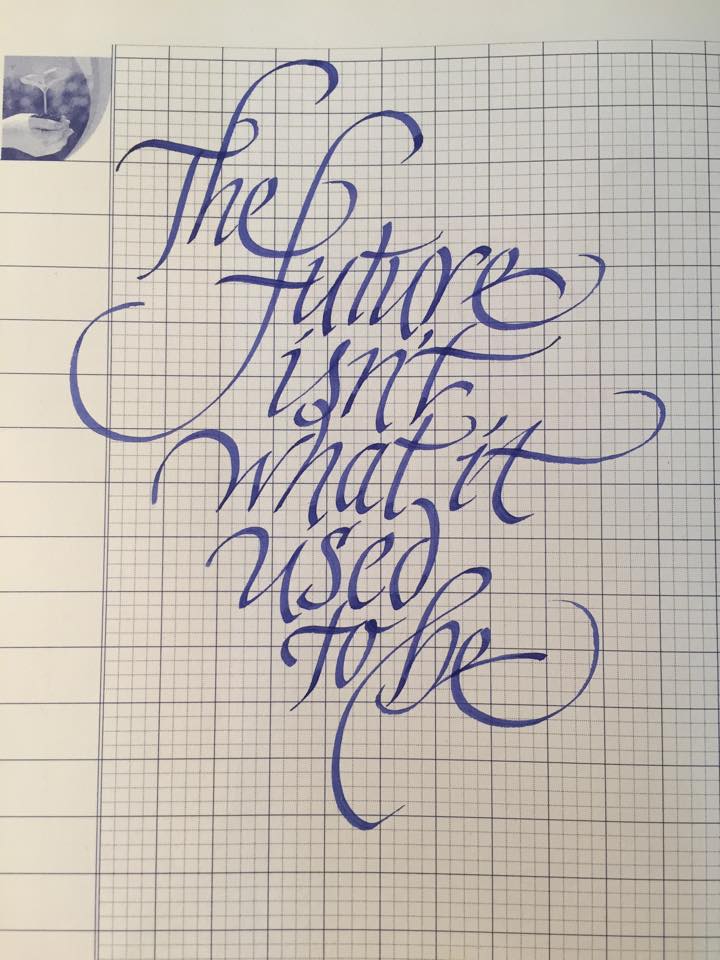 The
future
isn't
what it
used
to be